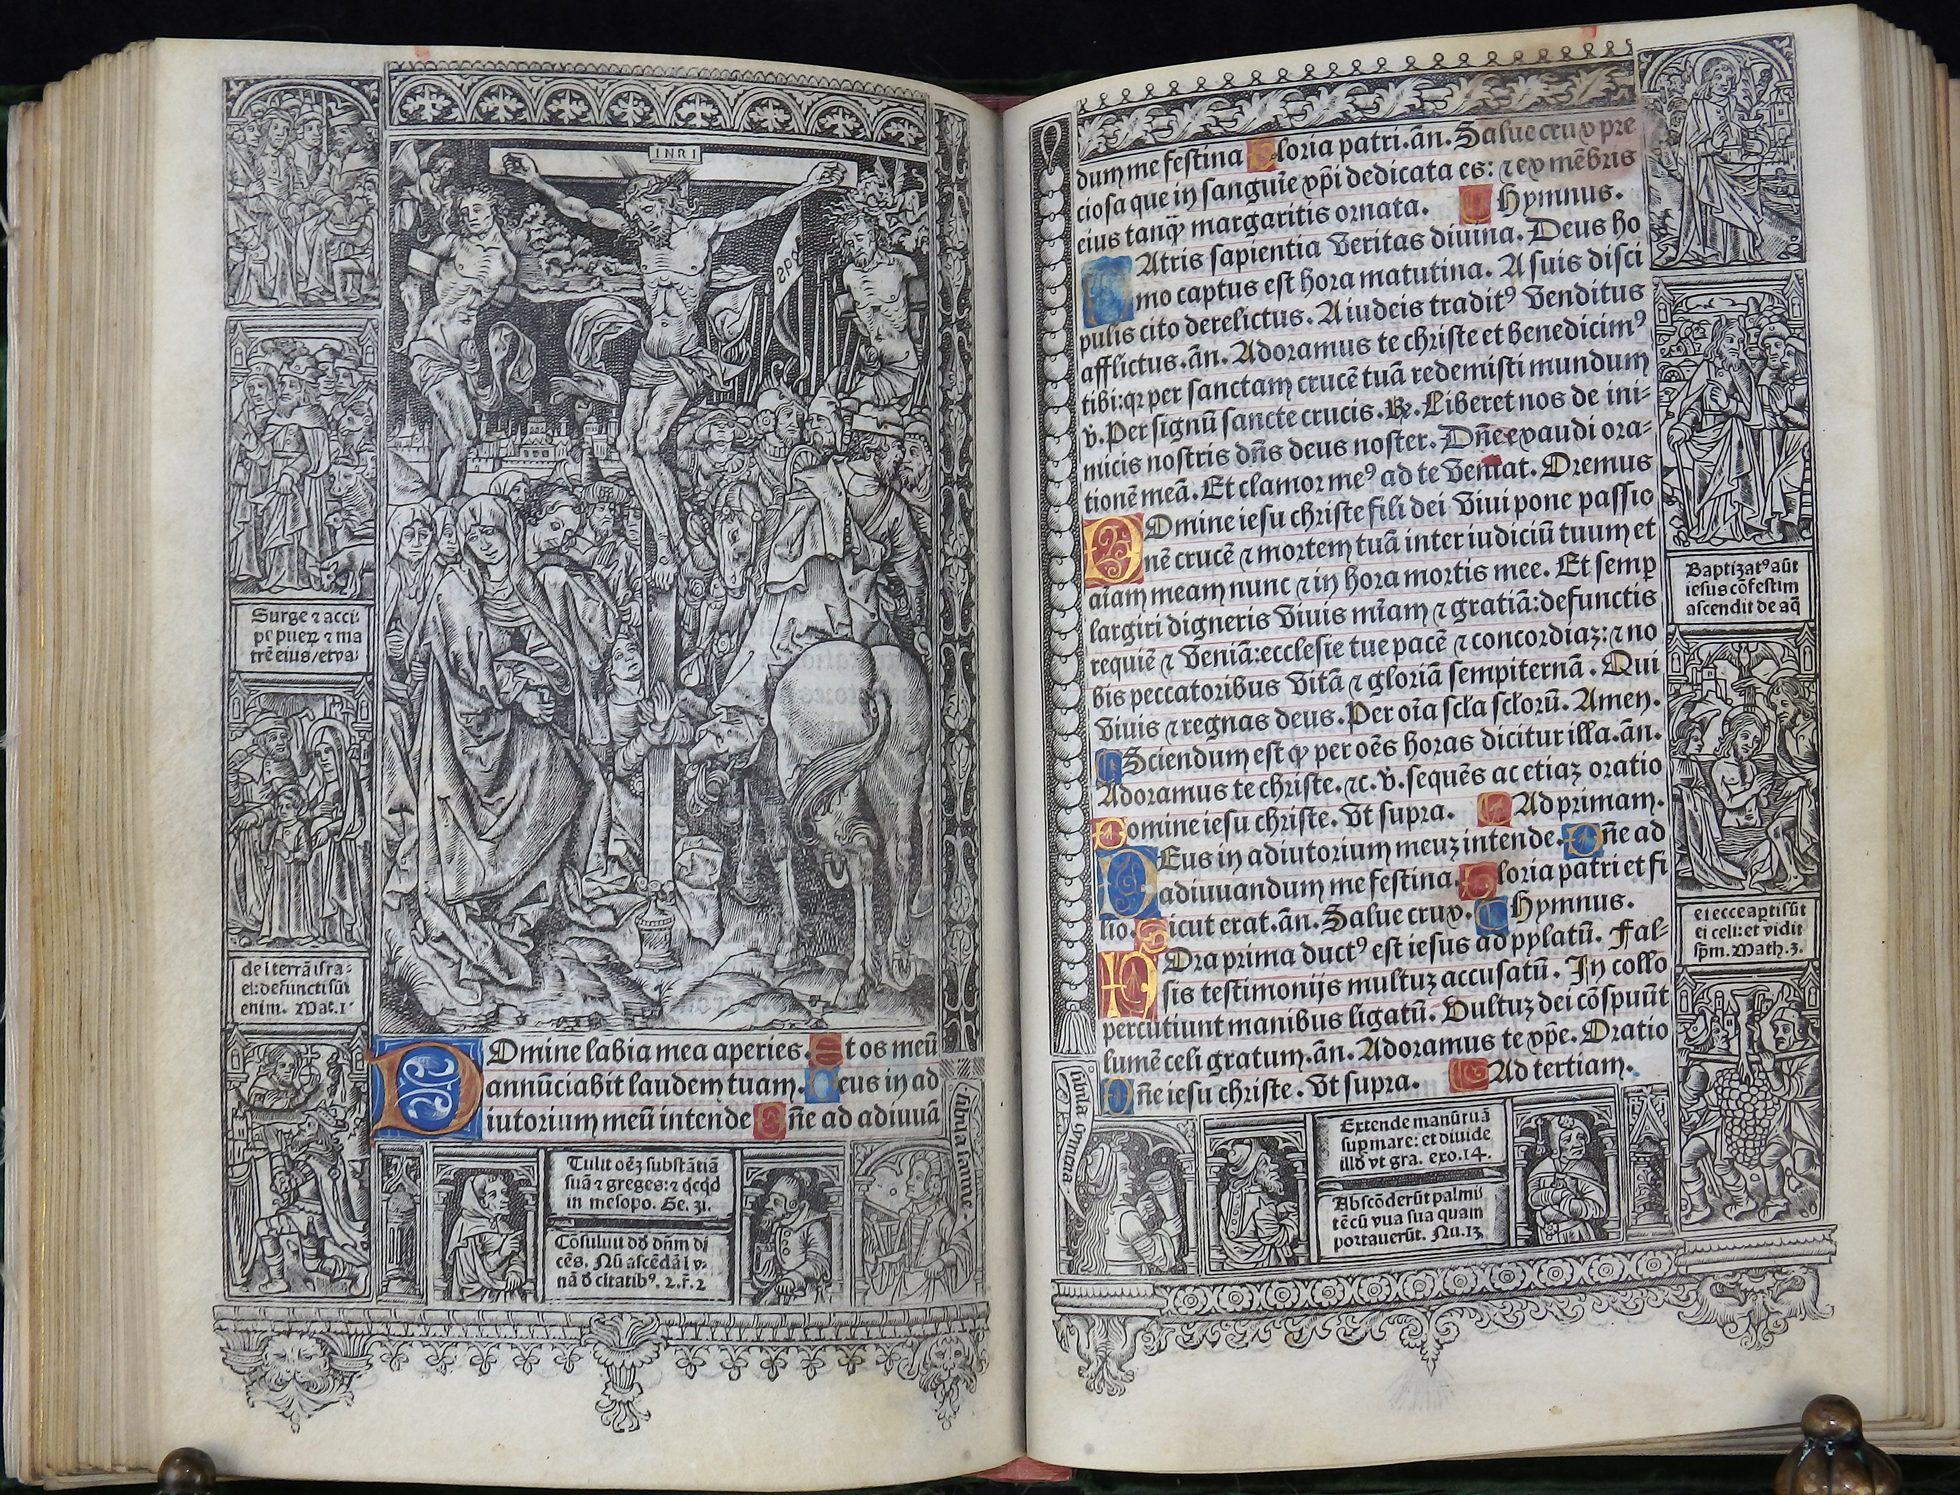 INRI
Surge ⁊ acci:
pe pueꝝ ⁊ ma
trē eius/et va:
de ī terrā isra:
el: defuncti sūt
enim. Mat. 1
Domine labia mea aperies. Et os meū
annūciabit laudem tuam. Deus in ad
iutorium meū intende Dn̄e ad adiuuā
Tulit oēꝫ substātiā
suā ⁊ greges: ⁊ qcqd
in mesopo. Ge. 31.
Cōsuluit dd dn̄m di
cēs. Nū ascedā ī v-
nā d citatibꝰ. 2. r̄. 2
sibila
dum me festina Gloria patri. an̄. Salue crux pre
ciosa que in sanguīe xp̄i dedicata es: ⁊ ex mēbris
eius tanqꝫ margaritis ornata. Hymnus.
PAtris sapientia veritas diuina. Deus ho
mo captus est hora matutina. A suis disci
pulis cito derelictus. A iudeis traditꝰ venditus
afflictus. an̄. Adoramus te christe et benedicimꝰ
tibi: qꝛ per sanctam crucē tuā redemisti mundum
v̄. Per signū sancte crucis. ℟. Liberet nos de ini-
micis nostris dn̄s deus noster. Dn̄e exaudi ora-
tionē meā. Et clamor meꝰ ad te veniat. Oremus
DOmine iesu christe fili dei viui pone passio
nē crucē ⁊ mortem tuā inter iudiciū tuum et
aīam meam nunc ⁊ in hora mortis mee. Et semꝑ
largiri digneris viuis mīam ⁊ gratiā: defunctis
requiē ⁊ veniā: ecclesie tue pacē ⁊ concordiaꝫ: ⁊ no
bis peccatoribus vitā ⁊ gloriā sempiternā. Qui
viuis ⁊ regnas deus. Per oīa scl̄a scl̄orū. Amen.
Sciendum est qꝫ per oēs horas dicitur illa. an̄.
Adoramus te christe. ⁊c. v̄. sequēs ac etiaꝫ oratio
Domine iesu christe. Vt supra. Ad primam.
DEus in adiutorium meuꝫ intende. Dn̄e ad
adiuuandum me festina. Gloria patri et fi
lio. Sicut erat. an̄. Salue crux. Hymnus.
HOra prima ductꝰ est iesus ad pylatū. Fal-
sis testimonijs multuꝫ accusatū. In collo
percutiunt manibus ligatū. Vultuꝫ dei cōspuūt
lumē celi gratum. an̄. Adoramus te xp̄e. Oratio
Dn̄e iesu christe. Vt supra. Ad tertiam.
Baptizatꝰ aūt
iesus cōfestim
ascendit de aq̄
et ecce apti sūt
ei celi: et vidit
sp̄m. Math. 3.
sibila
Extende manū tuā
suꝑ mare: et diuide
illd vt gra. exo. 14.
Abscōderūt palmi
tē cū vua sua quam
portauerūt. Nu. 13